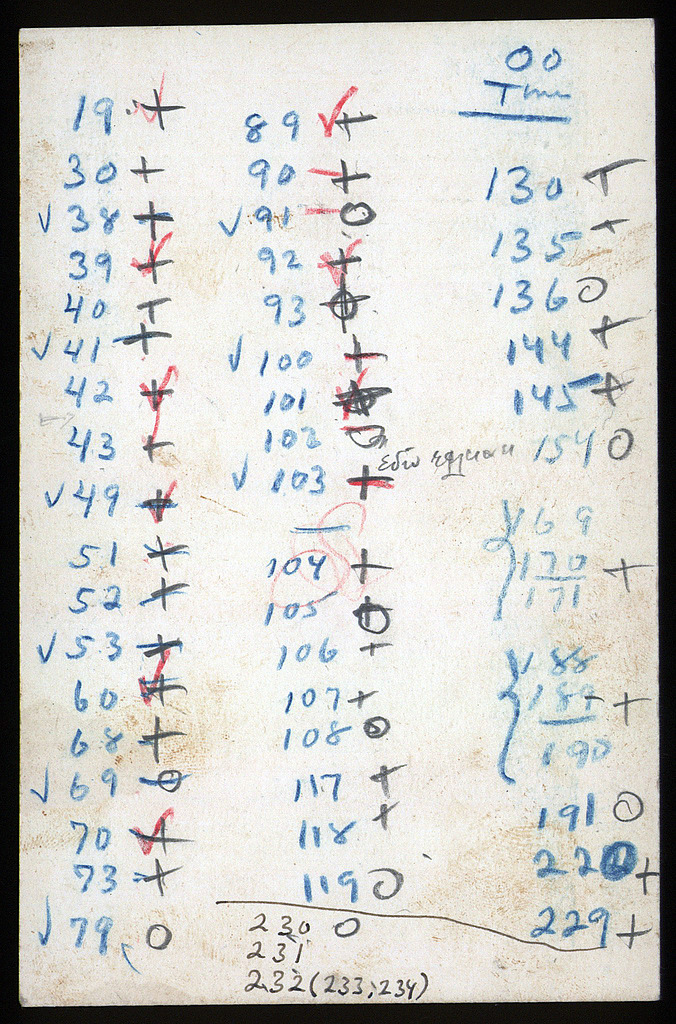 19 +
30 +
✓ 38 +
39 +
40 +
✓ 41 +
42 +
43 +
✓ 49 +
51 +
52 +
✓ 53 +
60 +
68 +
✓ 69 O
70 +
73 +
✓ 79 O
89 +
90 +
✓ 91 O
92 +
93 +
✓ 100 +
101
102 O
✓ 103 + εδώ
104 +
105 +
106 +
107 +
108 O
117 +
118 +
119 O
00
130 +
135 +
136 O
144 +
145 +
154 O
169
170 +
171
188
189 +
190
191 O
220 +
229 +
230 O
231
232 (233, 234)